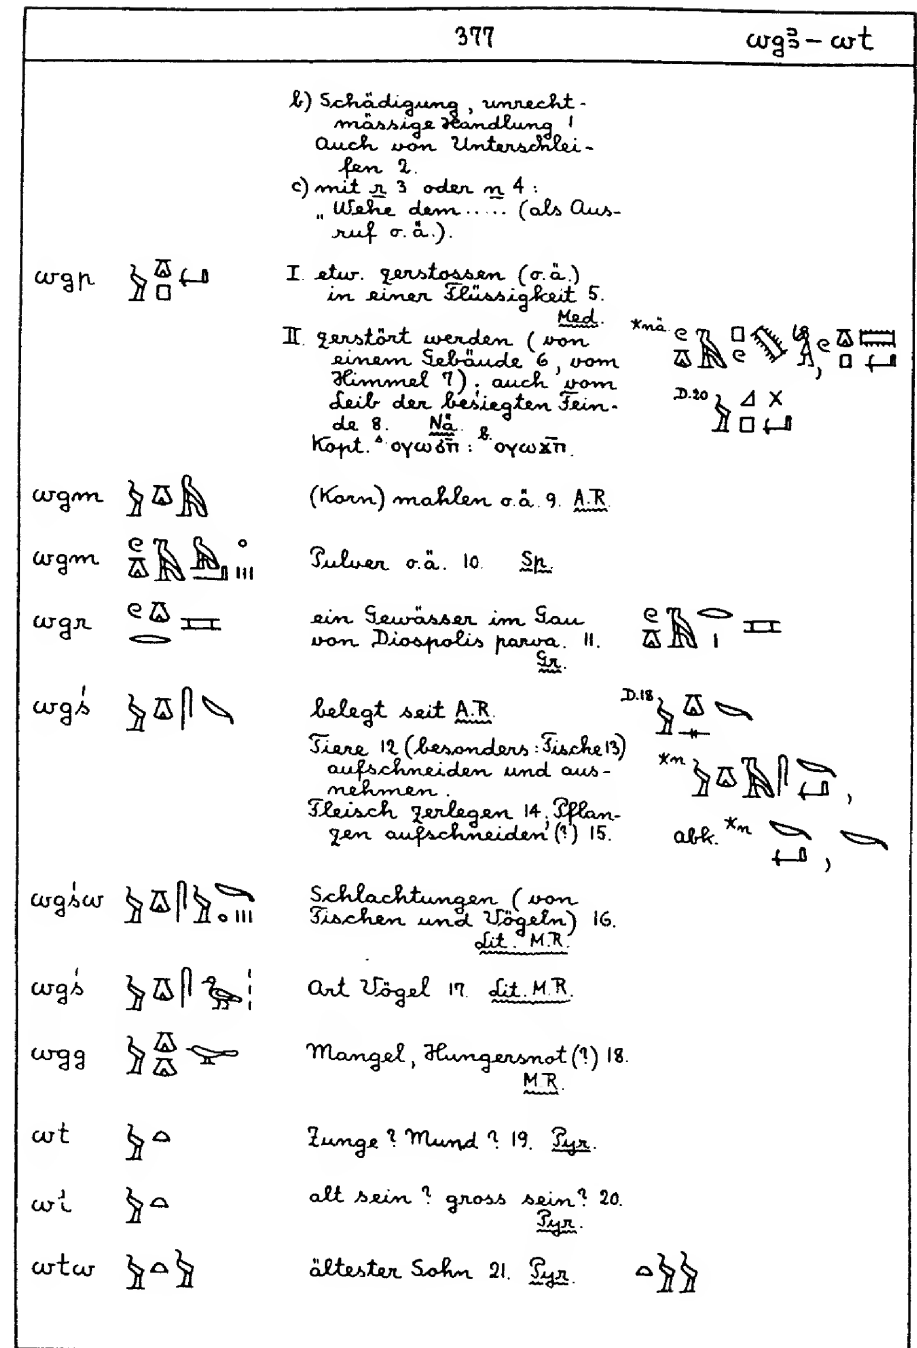 377 wgꜣ – wt
b) Schädigung, unrecht-
mässige Handlung 1
Auch von Unterschlei-
fen 2.
c) mit r 3 oder n 4:
„Wehe dem ..... (als Aus-
ruf o.ä.).
wgp 𓅱𓎼𓊪𓂡 I. etw. zerstossen (o.ä.)
in einer Flüssigkeit 5.
Med.
II. zerstört werden (von *nä.
einem Gebäude 6, vom
Himmel 7); auch vom
Leib der besiegten Fein- D.20
de 8. Nä.
Kopt. ˢ ⲟⲩⲱϭⲡ̄ : ᵇ ⲟⲩⲱϫⲡ̄.
wgm 𓅱𓎼𓅓 (Korn) mahlen o.ä. 9. A.R.
wgm Pulver o.ä. 10. Sp.
wgr 𓏲𓎼𓂋𓈘 ein Gewässer im Gau
von Diospolis parva. 11.
Gr.
wgś 𓅱𓎼𓋴𓌪 belegt seit A.R. D.18
Tiere 12 (besonders: Fische 13) *n
aufschneiden und aus-
nehmen.
Fleisch zerlegen 14; Pflan-
zen aufschneiden (?) 15. abk. *n
wgśw Schlachtungen (von
Fischen und Vögeln) 16.
Lit. M.R.
wgś Art Vögel 17. Lit. M.R.
wgg 𓅱𓎼𓎼𓅪 Mangel, Hungersnot (?) 18.
M.R.
wt 𓅱𓏏 Zunge? Mund? 19. Pyr.
wt 𓅱𓏏 alt sein? gross sein? 20.
Pyr.
wtw 𓅱𓏏𓅱 ältester Sohn 21. Pyr. 𓏏𓅱𓅱